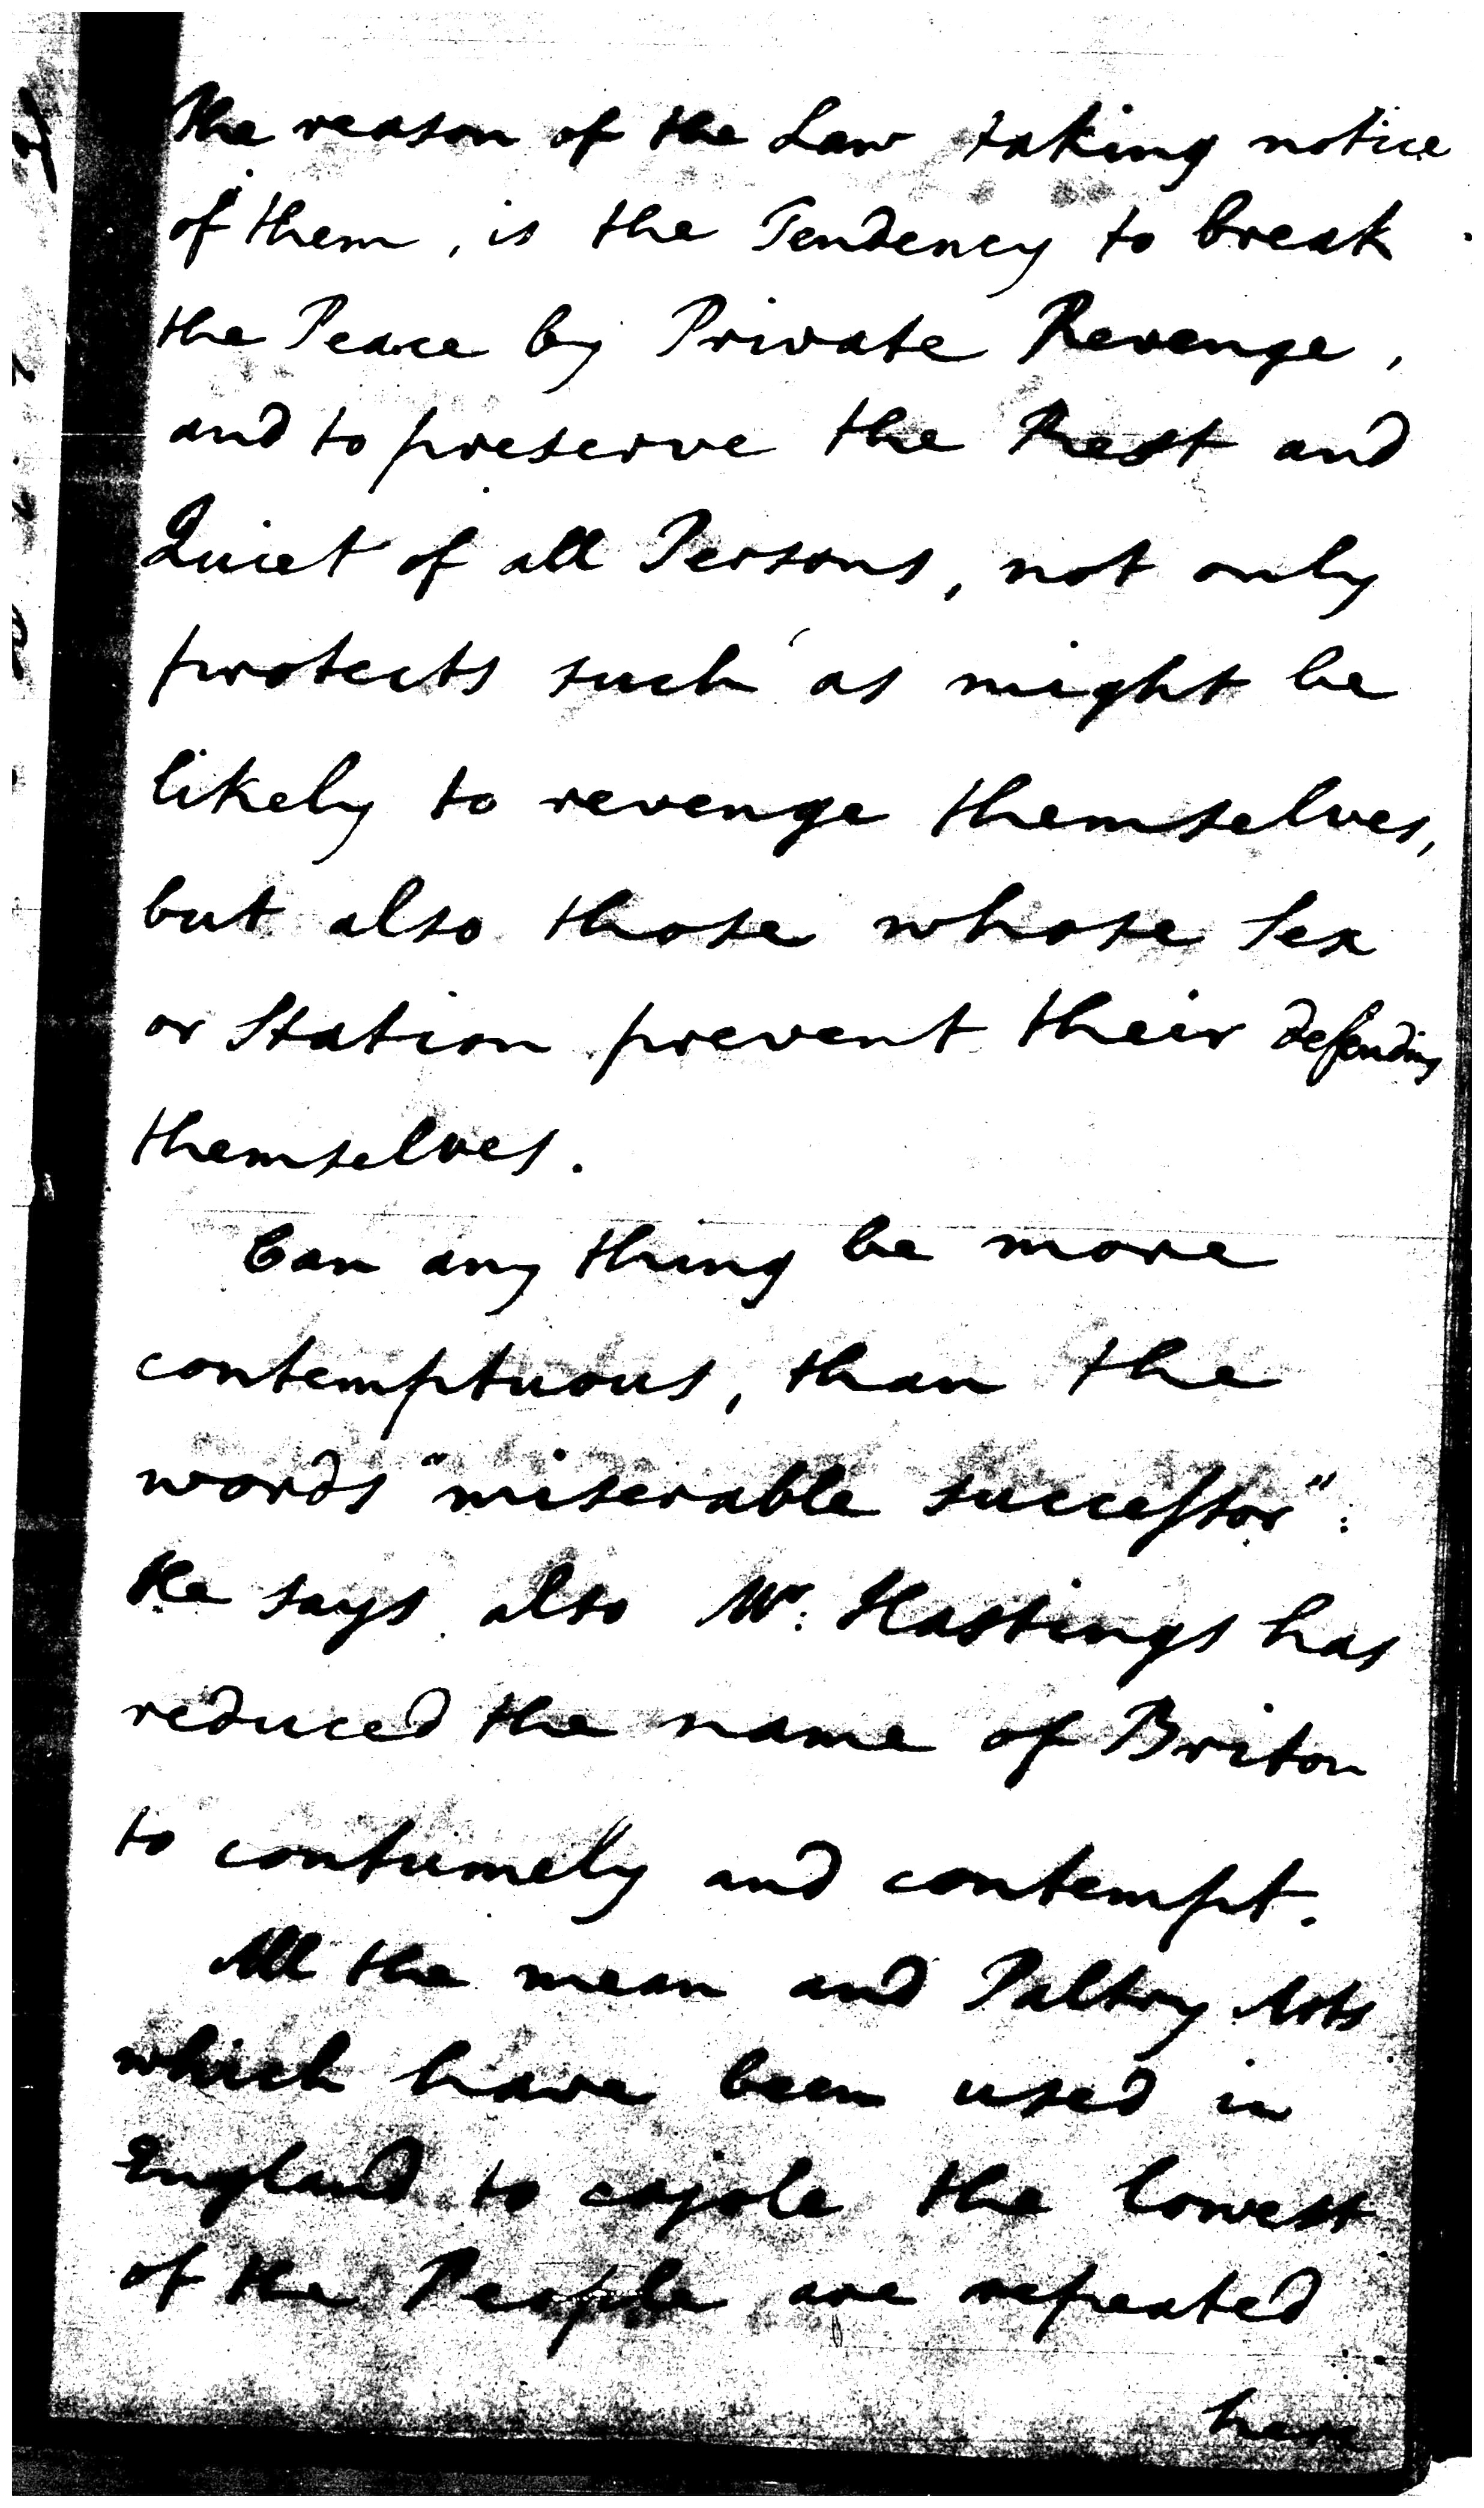 the reason of the Law taking notice
of them, is the Tendency to break
the Peace by Private Revenge,
and to preserve the Rest and
Quiet of all Persons, not only
protects such as might be
likely to revenge themselves,
but also those whose Sex
or Station prevent their defending
themselves.
Can any thing be more
contemptuous, than the
words "miserable successor":
He says also Mr. Hastings has
reduced the name of Briton
to contumely and contempt.
All the mean and Paltry Arts
which have been used in
England to cajole the lowest
of the People are repeated
here